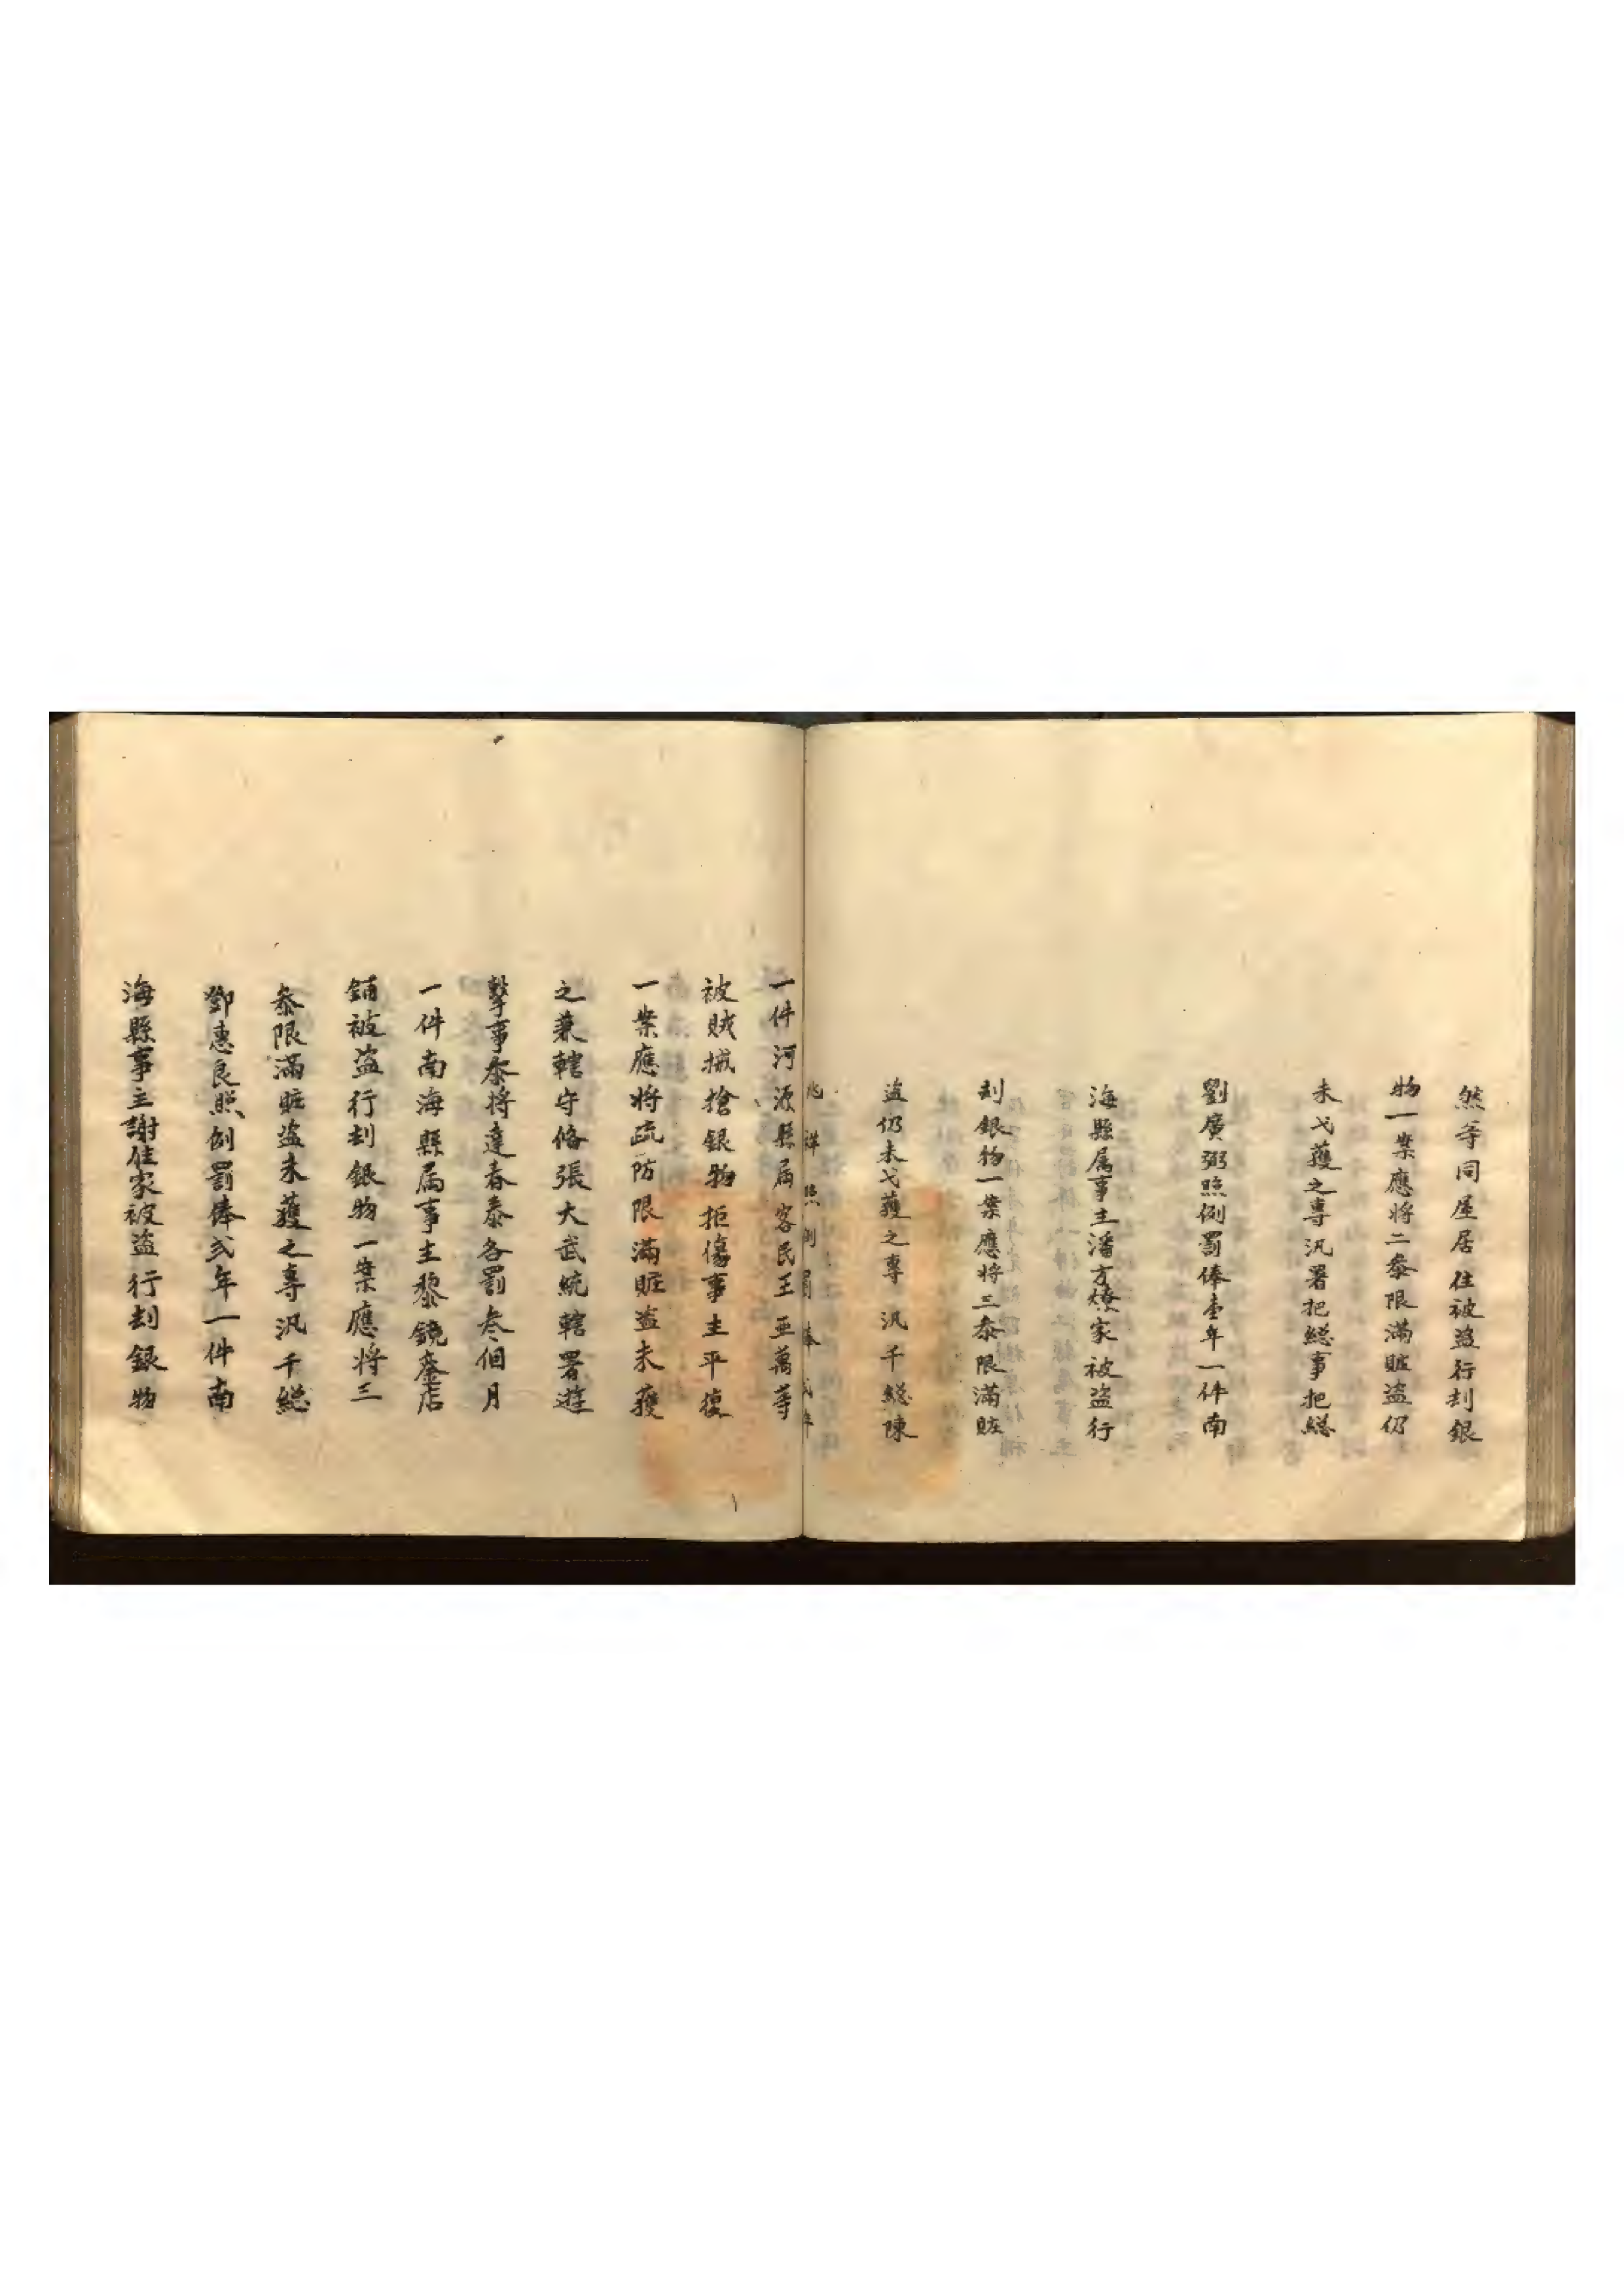 然等同屋居住被盜行刦銀
物一案應將二叅限滿賍盜仍
未弋獲之專汛署把總事把總
劉廣弼照例罰俸壹年一件南
海縣属事主潘方燎家被盜行
刦銀物一案應将三叅限滿賍
盜仍未弋獲之專汛千總陳
兆祥照例罰俸弍年
一件河源縣屬客民王亜萬等
被賊械搶銀物拒傷事主平復
一案應將疏防限滿賍盜未獲
之兼轄守俻張大武統轄署遊
擊事叅將達春泰各罰叁個月
一件南海縣属事主黎鏡店
鋪被盜行刦銀物一案應將三
叅限滿賍盜未獲之專汛千總
鄧惠良照例罰俸弍年一件南
海縣事主謝住家被盜行刦銀物